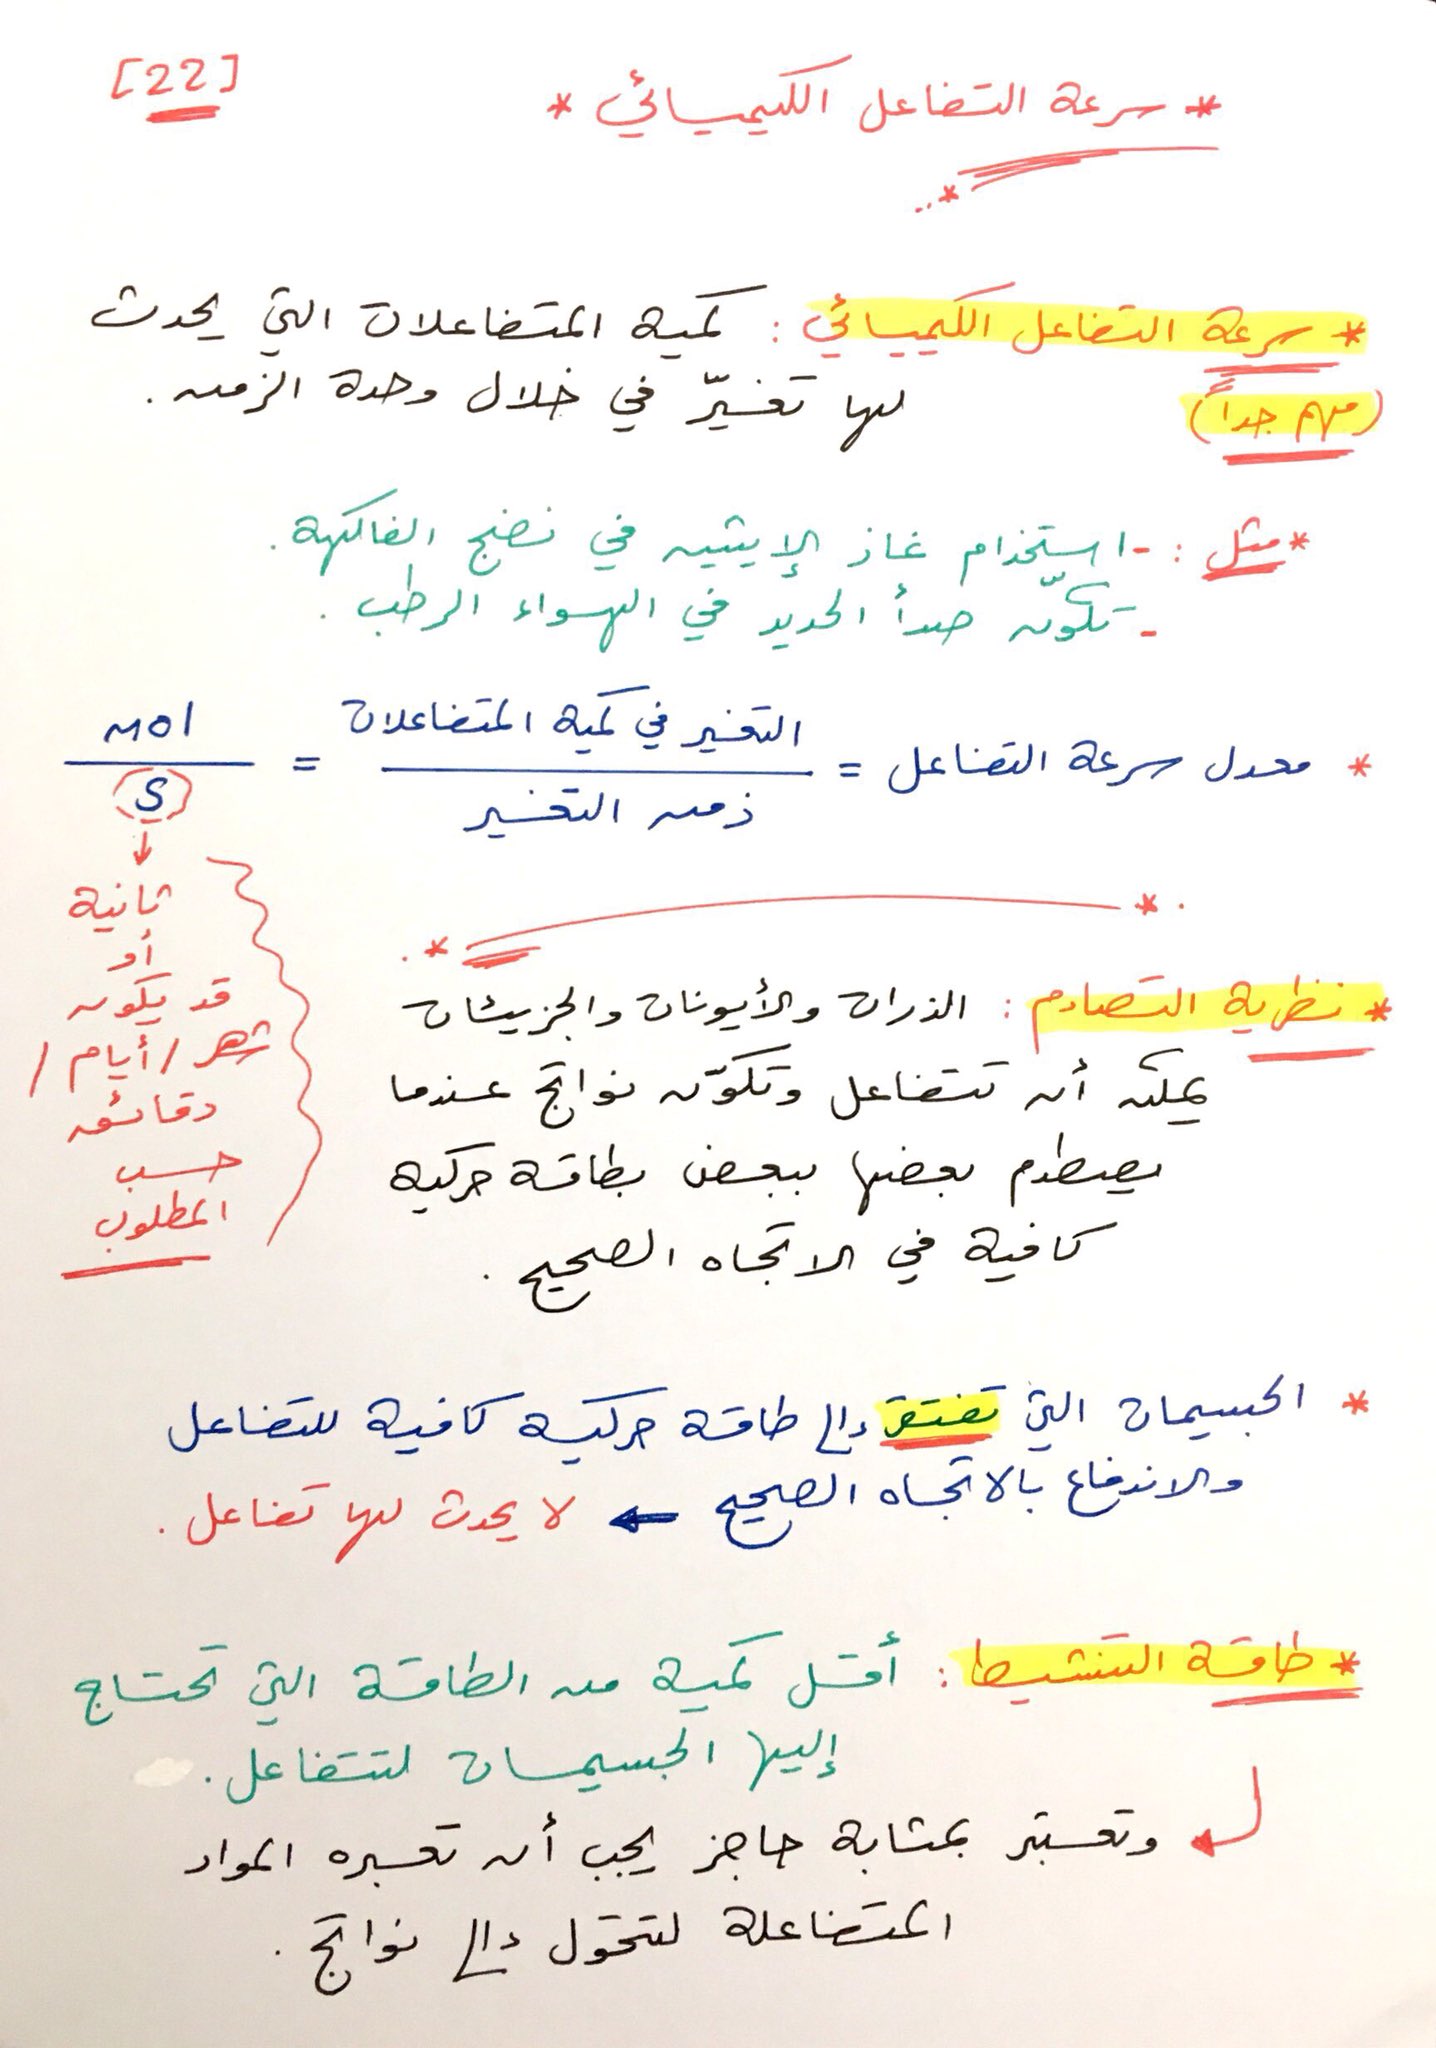 [22]
* سرعة التفاعل الكيميائي *
* سرعة التفاعل الكيميائي : كمية المتفاعلات التي يحدث
(مهم جداً) لها تغيّر في خلال وحدة الزمن .
* مثل : - استخدام غاز الإيثين في نضج الفاكهة .
- تكوّن صدأ الحديد في الهواء الرطب .
* معدل سرعة التفاعل = التغير في كمية المتفاعلات / زمن التغير = mol / s
ثانية
أو
قد يكون
شهر / أيام /
دقائق
حسب
المطلوب
* نظرية التصادم : الذرات والأيونات والجزيئات
يمكن أن تتفاعل وتكوّن نواتج عندما
يصطدم بعضها ببعض بطاقة حركية
كافية في الاتجاه الصحيح .
* الجسيمات التي تفتقر إلى طاقة حركية كافية للتفاعل
والاندفاع بالاتجاه الصحيح ← لا يحدث لها تفاعل .
* طاقة التنشيط : أقل كمية من الطاقة التي تحتاج
إليها الجسيمات لتتفاعل .
وتعتبر بمثابة حاجز يجب أن تعبره المواد
المتفاعلة لتتحول إلى نواتج .